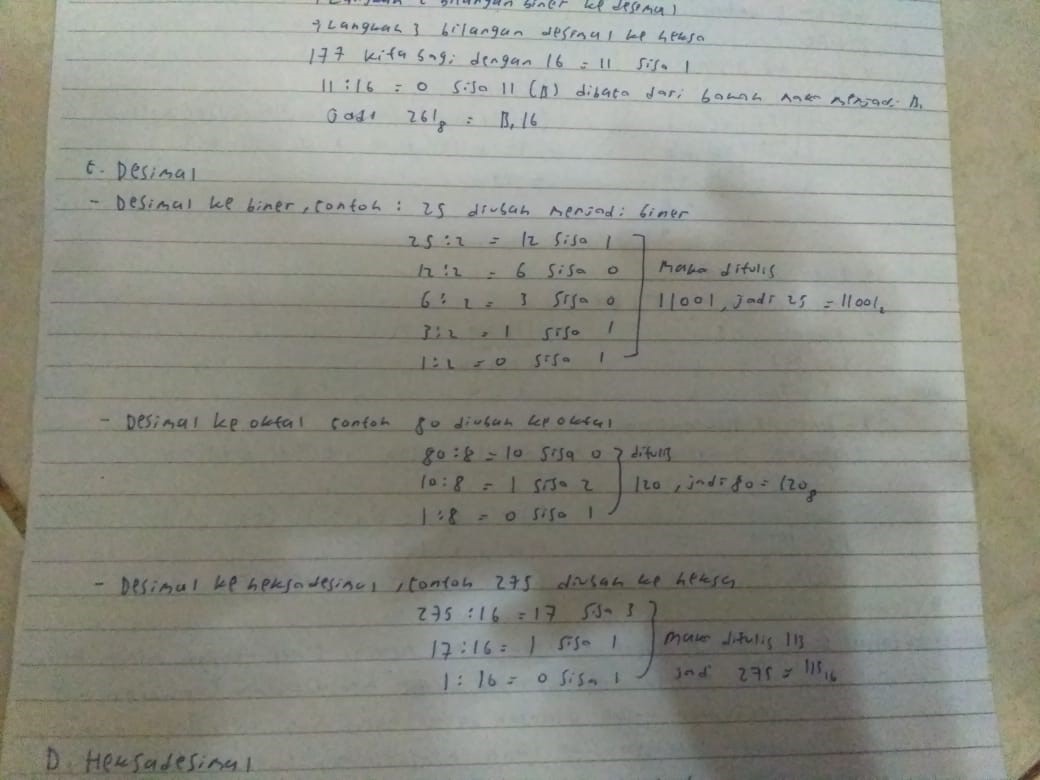 bilangan biner ke desimal
→ Langkah 3 bilangan desimal ke heksa
177 kita bagi dengan 16 = 11 sisa 1
11 : 16 = 0 sisa 11 (B) dibaca dari bawah maka menjadi B,
Jadi 261₈ = B,16
C. Desimal
- Desimal ke biner, contoh : 25 diubah menjadi biner
25 : 2 = 12 sisa 1
12 : 2 = 6 sisa 0 maka ditulis
6 : 2 = 3 sisa 0 11001, jadi 25 = 11001₂
3 : 2 = 1 sisa 1
1 : 2 = 0 sisa 1
- Desimal ke oktal contoh 80 diubah ke oktal
80 : 8 = 10 sisa 0 ditulis
10 : 8 = 1 sisa 2 120, jadi 80 = 120₈
1 : 8 = 0 sisa 1
- Desimal ke heksadesimal, contoh 275 diubah ke heksa
275 : 16 = 17 sisa 3
17 : 16 = 1 sisa 1 maka ditulis 113
1 : 16 = 0 sisa 1 jadi 275 = 113₁₆
D. Heksadesimal